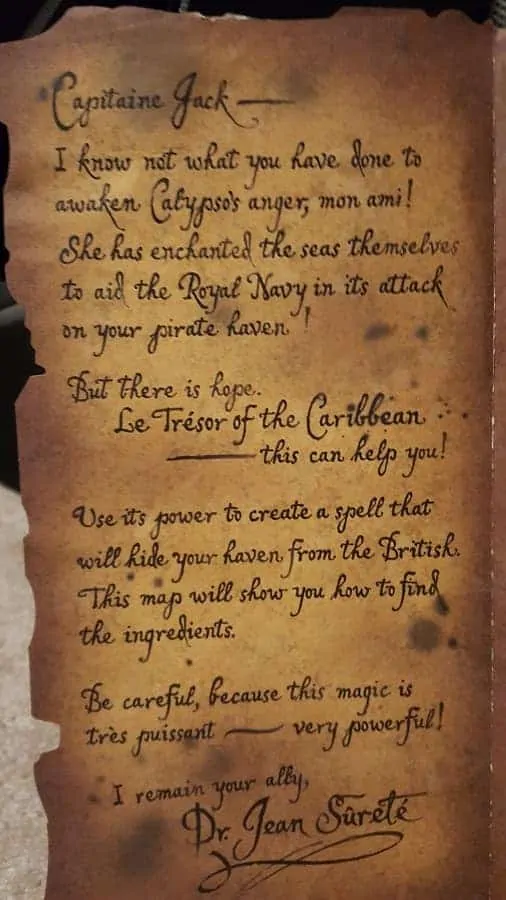 Capitaine Jack —
I know not what you have done to
awaken Calypso's anger, mon ami!
She has enchanted the seas themselves
to aid the Royal Navy in its attack
on your pirate haven!
But there is hope.
Le Trésor of the Caribbean
— this can help you!
Use its power to create a spell that
will hide your haven from the British.
This map will show you how to find
the ingredients.
Be careful, because this magic is
très puissant — very powerful!
I remain your ally,
Dr. Jean Sûreté